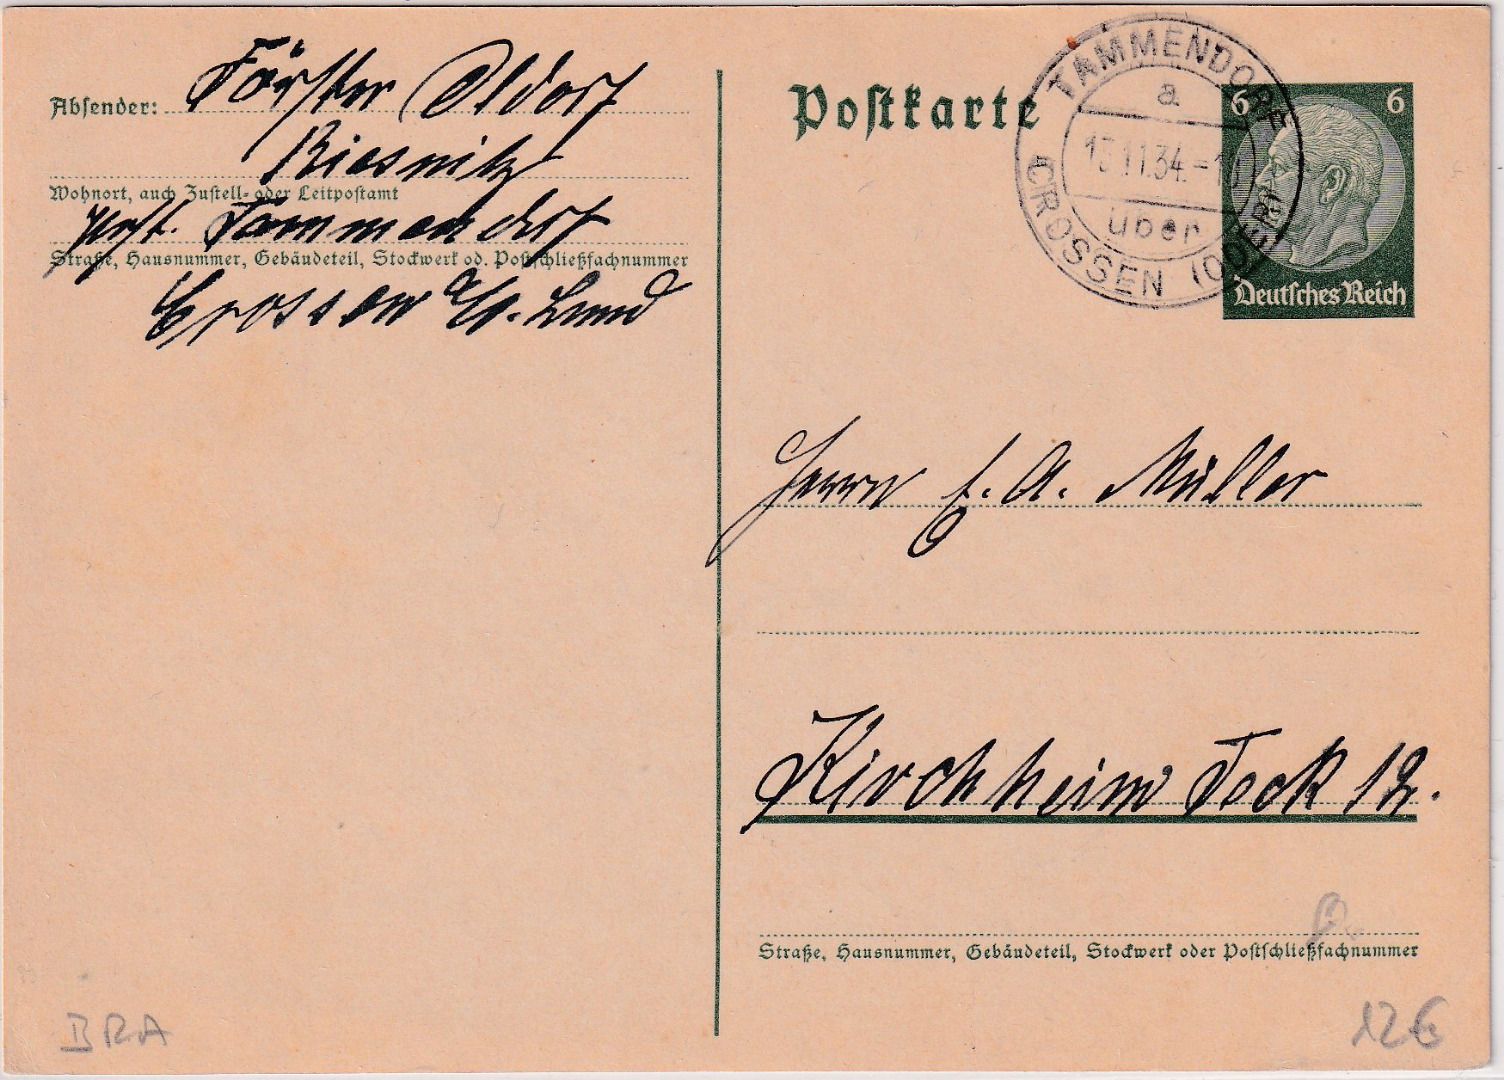 Absender: Förster Oldorf
Riesnitz
Wohnort, auch Zustell- oder Leitpostamt
Post. Tammendorf
Straße, Hausnummer, Gebäudeteil, Stockwerk od. Postschließfachnummer
Crossen a/O. Land
Postkarte
TAMMENDORF
a
11.34.-
über
CROSSEN (ODER)
6 6
Deutsches Reich
Herrn E. A. Müller
Kirchheim Teck 12.
Straße, Hausnummer, Gebäudeteil, Stockwerk oder Postschließfachnummer
BRA
12€